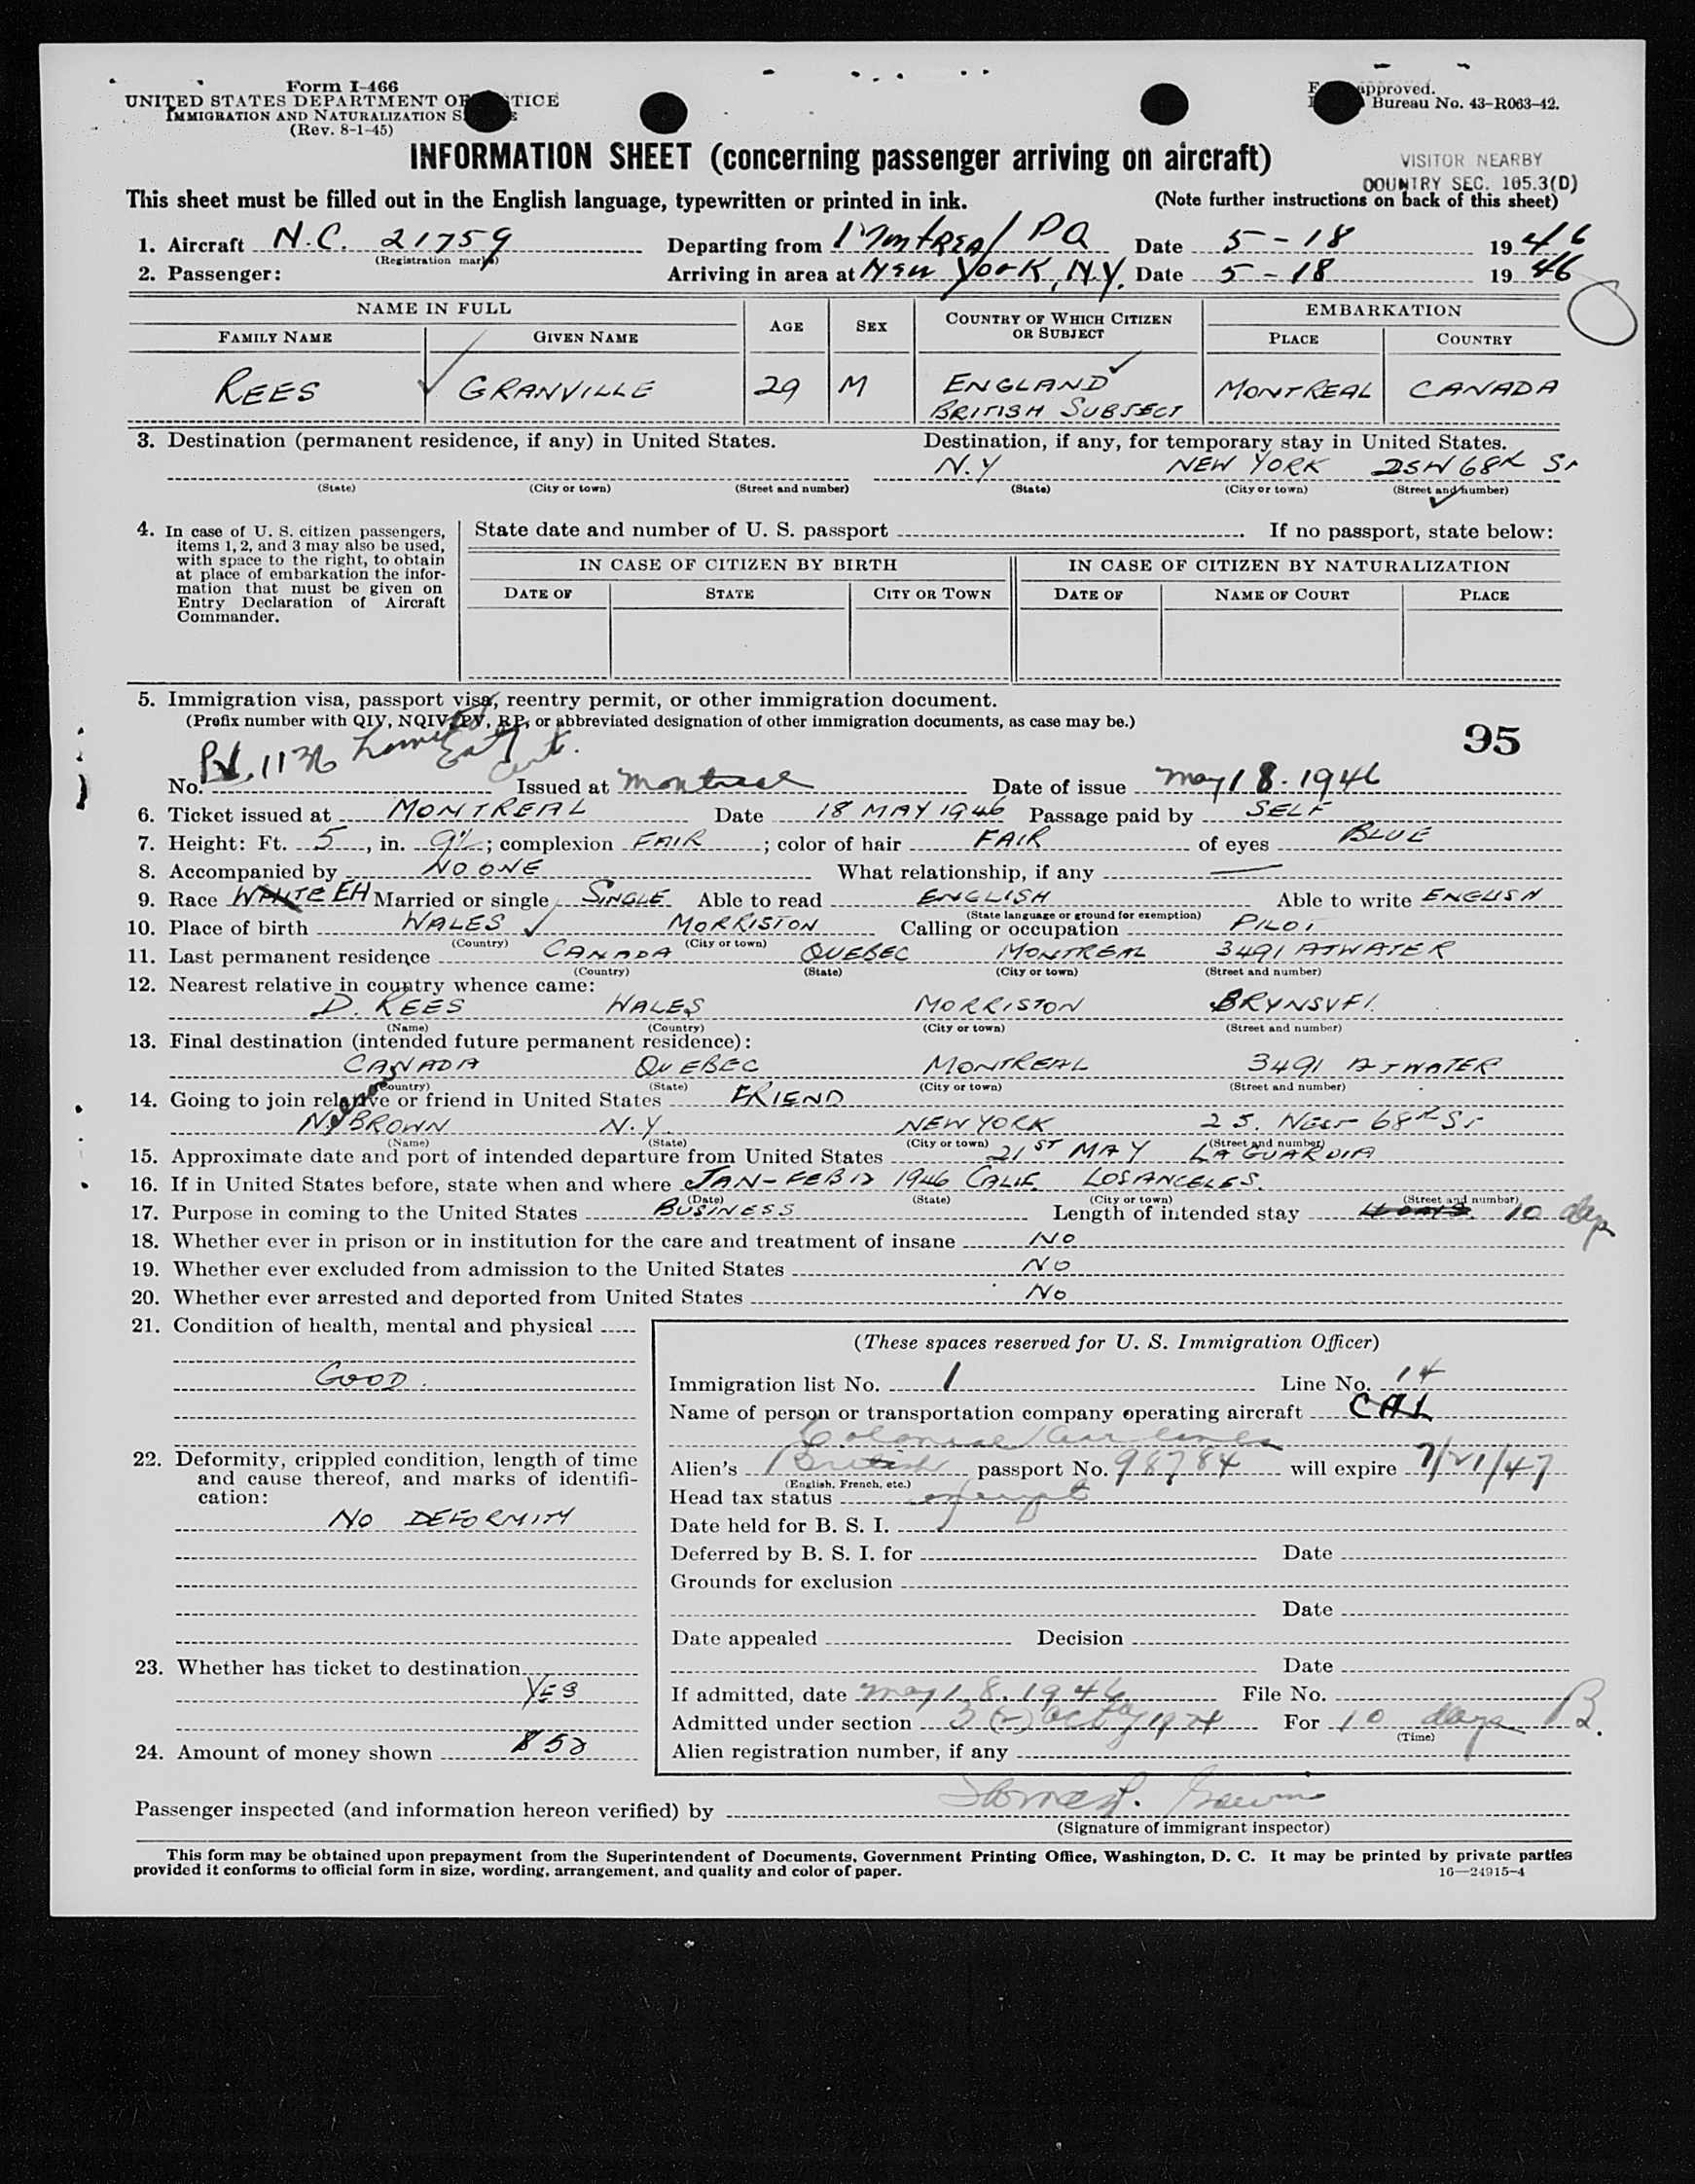 Form I-466
UNITED STATES DEPARTMENT OF JUSTICE
IMMIGRATION AND NATURALIZATION SERVICE
(Rev. 8-1-45)
approved.
Bureau No. 43-R063-42.
INFORMATION SHEET (concerning passenger arriving on aircraft)
VISITOR NEARBY
COUNTRY SEC. 165.3(D)
This sheet must be filled out in the English language, typewritten or printed in ink. (Note further instructions on back of this sheet)
1. Aircraft N.C. 21759 Departing from Montreal PQ Date 5-18 1946
(Registration marks)
2. Passenger: Arriving in area at New York, N.Y. Date 5-18 1946
NAME IN FULL AGE SEX COUNTRY OF WHICH CITIZEN OR SUBJECT EMBARKATION
FAMILY NAME GIVEN NAME PLACE COUNTRY
REES GRANVILLE 29 M ENGLAND MONTREAL CANADA
BRITISH SUBJECT
3. Destination (permanent residence, if any) in United States. Destination, if any, for temporary stay in United States.
N.Y NEW YORK 25W 68th St
(State) (City or town) (Street and number) (State) (City or town) (Street and number)
4. In case of U. S. citizen passengers, items 1, 2, and 3 may also be used, with space to the right, to obtain at place of embarkation the information that must be given on Entry Declaration of Aircraft Commander.
State date and number of U. S. passport If no passport, state below:
IN CASE OF CITIZEN BY BIRTH IN CASE OF CITIZEN BY NATURALIZATION
DATE OF STATE CITY OR TOWN DATE OF NAME OF COURT PLACE
5. Immigration visa, passport visa, reentry permit, or other immigration document.
(Prefix number with QIV, NQIV, PV, RP, or abbreviated designation of other immigration documents, as case may be.)
95
No. Issued at Montreal Date of issue May 18. 1946
6. Ticket issued at MONTREAL Date 18 MAY 1946 Passage paid by SELF
7. Height: Ft. 5, in. 9½; complexion FAIR; color of hair FAIR of eyes BLUE
8. Accompanied by NO ONE What relationship, if any —
9. Race WHITE EH Married or single SINGLE Able to read ENGLISH Able to write ENGLISH
(State language or ground for exemption)
10. Place of birth WALES MORRISTON Calling or occupation PILOT
(Country) (City or town)
11. Last permanent residence CANADA QUEBEC MONTREAL 3491 ATWATER
(Country) (State) (City or town) (Street and number)
12. Nearest relative in country whence came:
D. REES WALES MORRISTON BRYNSYFI.
(Name) (Country) (City or town) (Street and number)
13. Final destination (intended future permanent residence):
CANADA QUEBEC MONTREAL 3491 ATWATER
(Country) (State) (City or town) (Street and number)
14. Going to join relative or friend in United States FRIEND
BROWN N.Y. NEW YORK 25. West 68th St
(Name) (State) (City or town) (Street and number)
15. Approximate date and port of intended departure from United States 21ST MAY LA GUARDIA
16. If in United States before, state when and where JAN-FEB 12 1946 CALIF. LOS ANGELES.
(Date) (State) (City or town) (Street and number)
17. Purpose in coming to the United States BUSINESS Length of intended stay 4 DAYS 10 days
18. Whether ever in prison or in institution for the care and treatment of insane NO
19. Whether ever excluded from admission to the United States NO
20. Whether ever arrested and deported from United States NO
21. Condition of health, mental and physical
GOOD.
22. Deformity, crippled condition, length of time and cause thereof, and marks of identification:
NO DEFORMITY
23. Whether has ticket to destination
YES
24. Amount of money shown $50
(These spaces reserved for U. S. Immigration Officer)
Immigration list No. 1 Line No. 14
Name of person or transportation company operating aircraft CAL
Colonial Air lines
Alien's British passport No. 98784 will expire 7/21/47
(English, French, etc.)
Head tax status exempt
Date held for B. S. I.
Deferred by B. S. I. for Date
Grounds for exclusion
Date
Date appealed Decision
Date
If admitted, date May 18, 1946 File No.
Admitted under section 3(2) act of 1924 For 10 days B.
(Time)
Alien registration number, if any
Passenger inspected (and information hereon verified) by
(Signature of immigrant inspector)
This form may be obtained upon prepayment from the Superintendent of Documents, Government Printing Office, Washington, D. C. It may be printed by private parties
provided it conforms to official form in size, wording, arrangement, and quality and color of paper. 16—24915-4